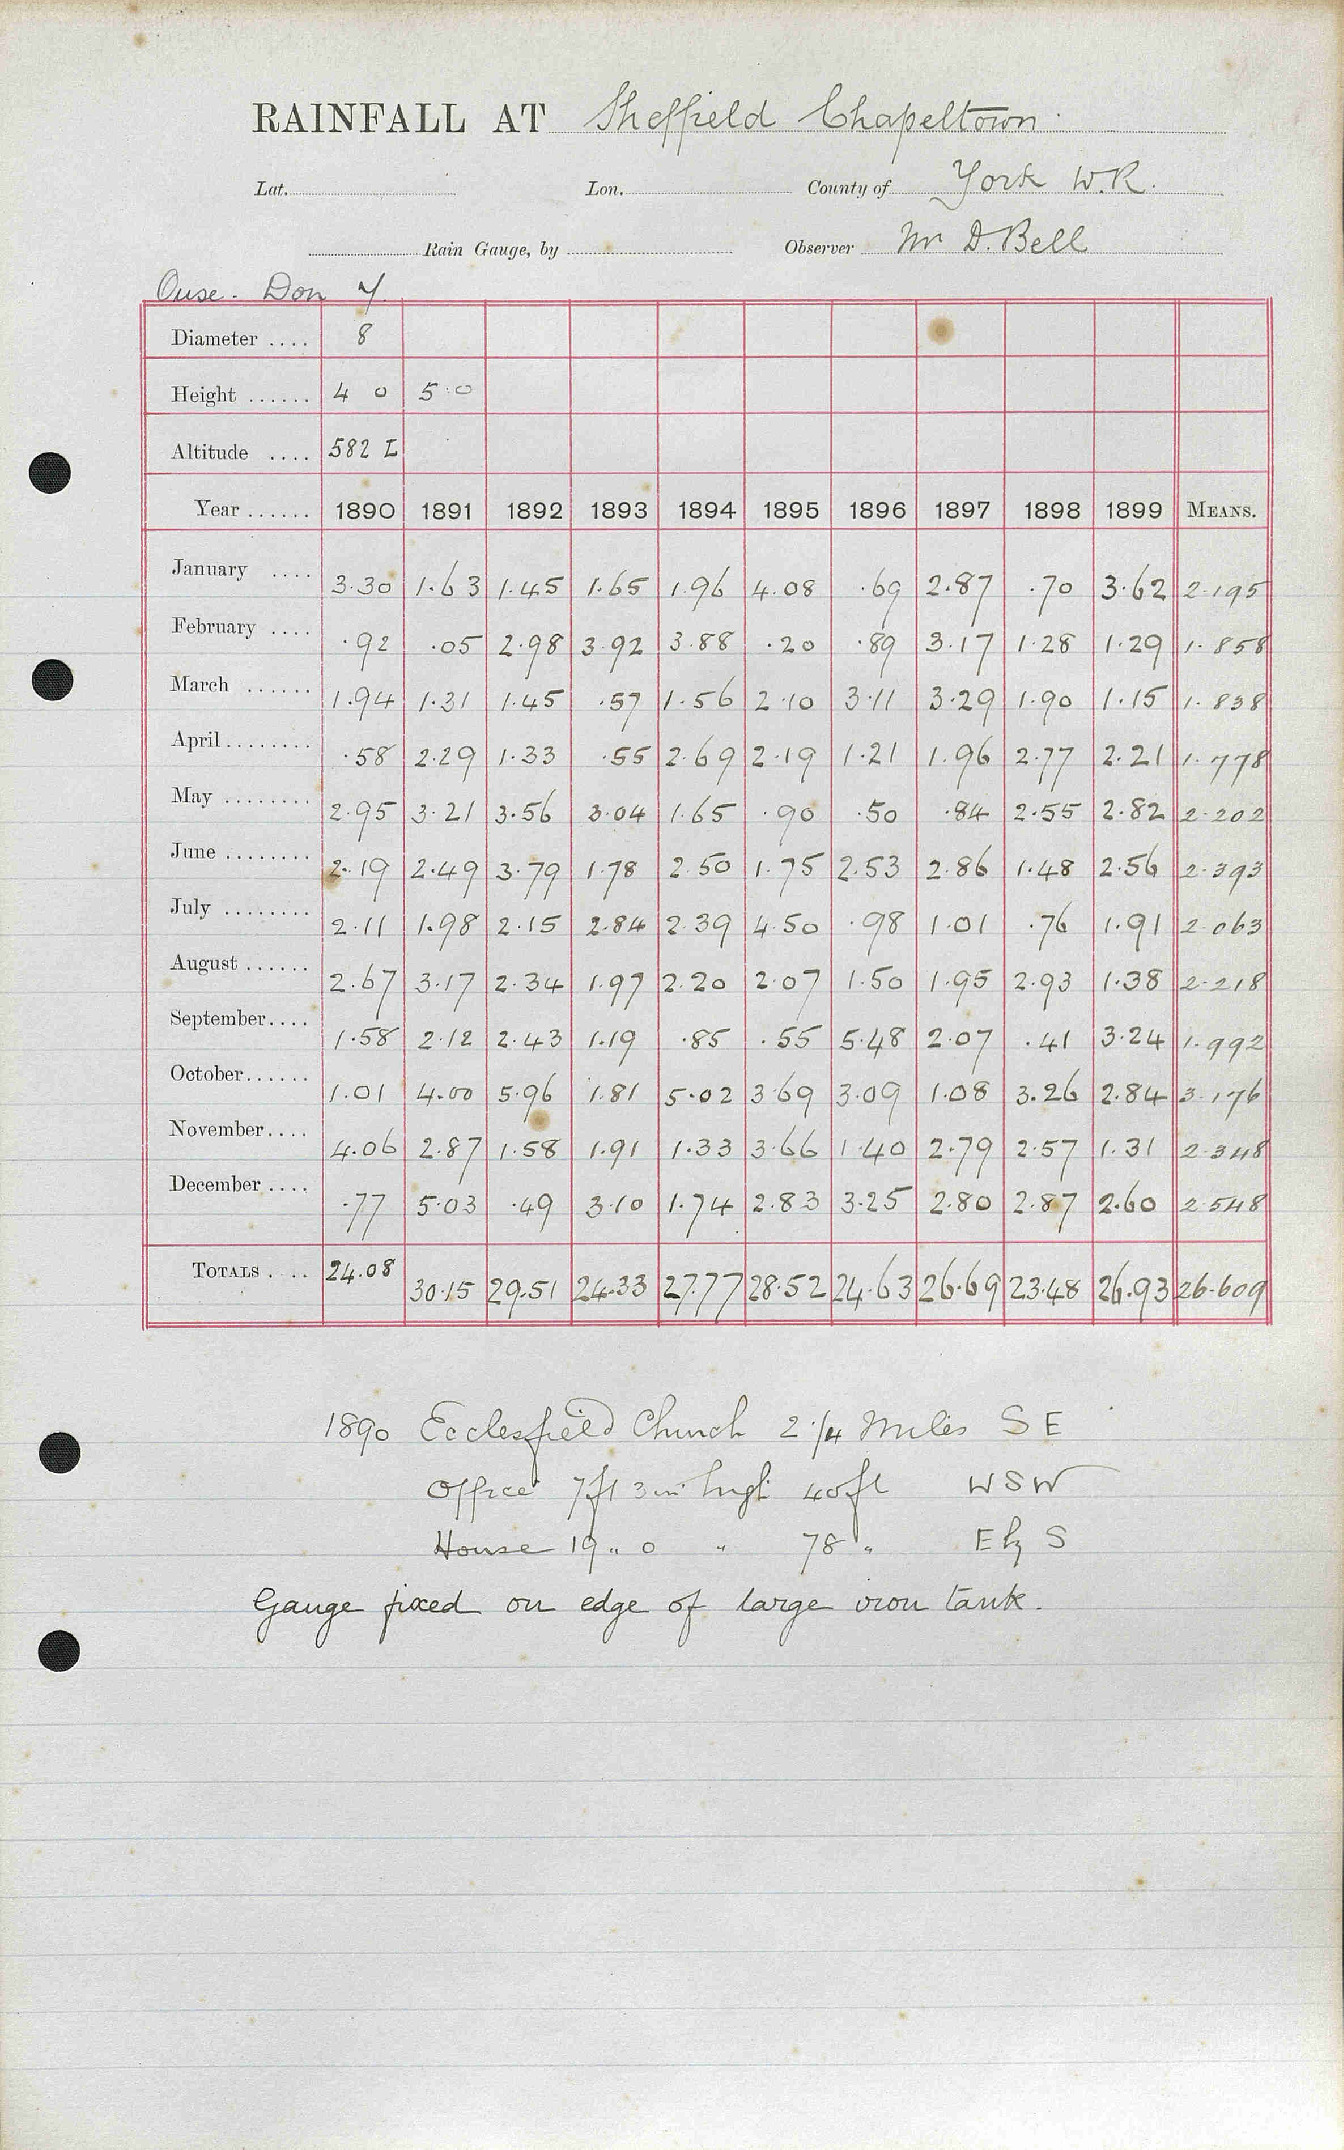 RAINFALL AT Sheffield Chapeltown.
Lat. Lon. County of York W.R.
Rain Gauge, by Observer Mr D. Bell
Ouse. Don
Diameter .... 8
Height ...... 4 0 5 0
Altitude .... 582 L
Year ...... 1890 1891 1892 1893 1894 1895 1896 1897 1898 1899 MEANS.
January .... 3.30 1.63 1.45 1.65 1.96 4.08 .69 2.87 .70 3.62 2.195
February .... .92 .05 2.98 3.92 3.88 .20 .89 3.17 1.28 1.29 1.858
March ...... 1.94 1.31 1.45 .57 1.56 2.10 3.11 3.29 1.90 1.15 1.838
April ........ .58 2.29 1.33 .55 2.69 2.19 1.21 1.96 2.77 2.21 1.778
May ........ 2.95 3.21 3.56 3.04 1.65 .90 .50 .84 2.55 2.82 2.202
June ........ 2.19 2.49 3.79 1.78 2.50 1.75 2.53 2.86 1.48 2.56 2.393
July ........ 2.11 1.98 2.15 2.84 2.39 4.50 .98 1.01 .76 1.91 2.063
August ...... 2.67 3.17 2.34 1.97 2.20 2.07 1.50 1.95 2.93 1.38 2.218
September.... 1.58 2.12 2.43 1.19 .85 .55 5.48 2.07 .41 3.24 1.992
October...... 1.01 4.00 5.96 1.81 5.02 3.69 3.09 1.08 3.26 2.84 3.176
November.... 4.06 2.87 1.58 1.91 1.33 3.66 1.40 2.79 2.57 1.31 2.348
December .... .77 5.03 .49 3.10 1.74 2.83 3.25 2.80 2.87 2.60 2.548
TOTALS .... 24.08 30.15 29.51 24.33 27.77 28.52 24.63 26.69 23.48 26.93 26.609
1890 Ecclesfield Church 2 1/4 Miles S E
Office 7ft 3in high 40ft W S W
House 19 " 0 " 78 " E by S
Gauge fixed on edge of large iron tank.